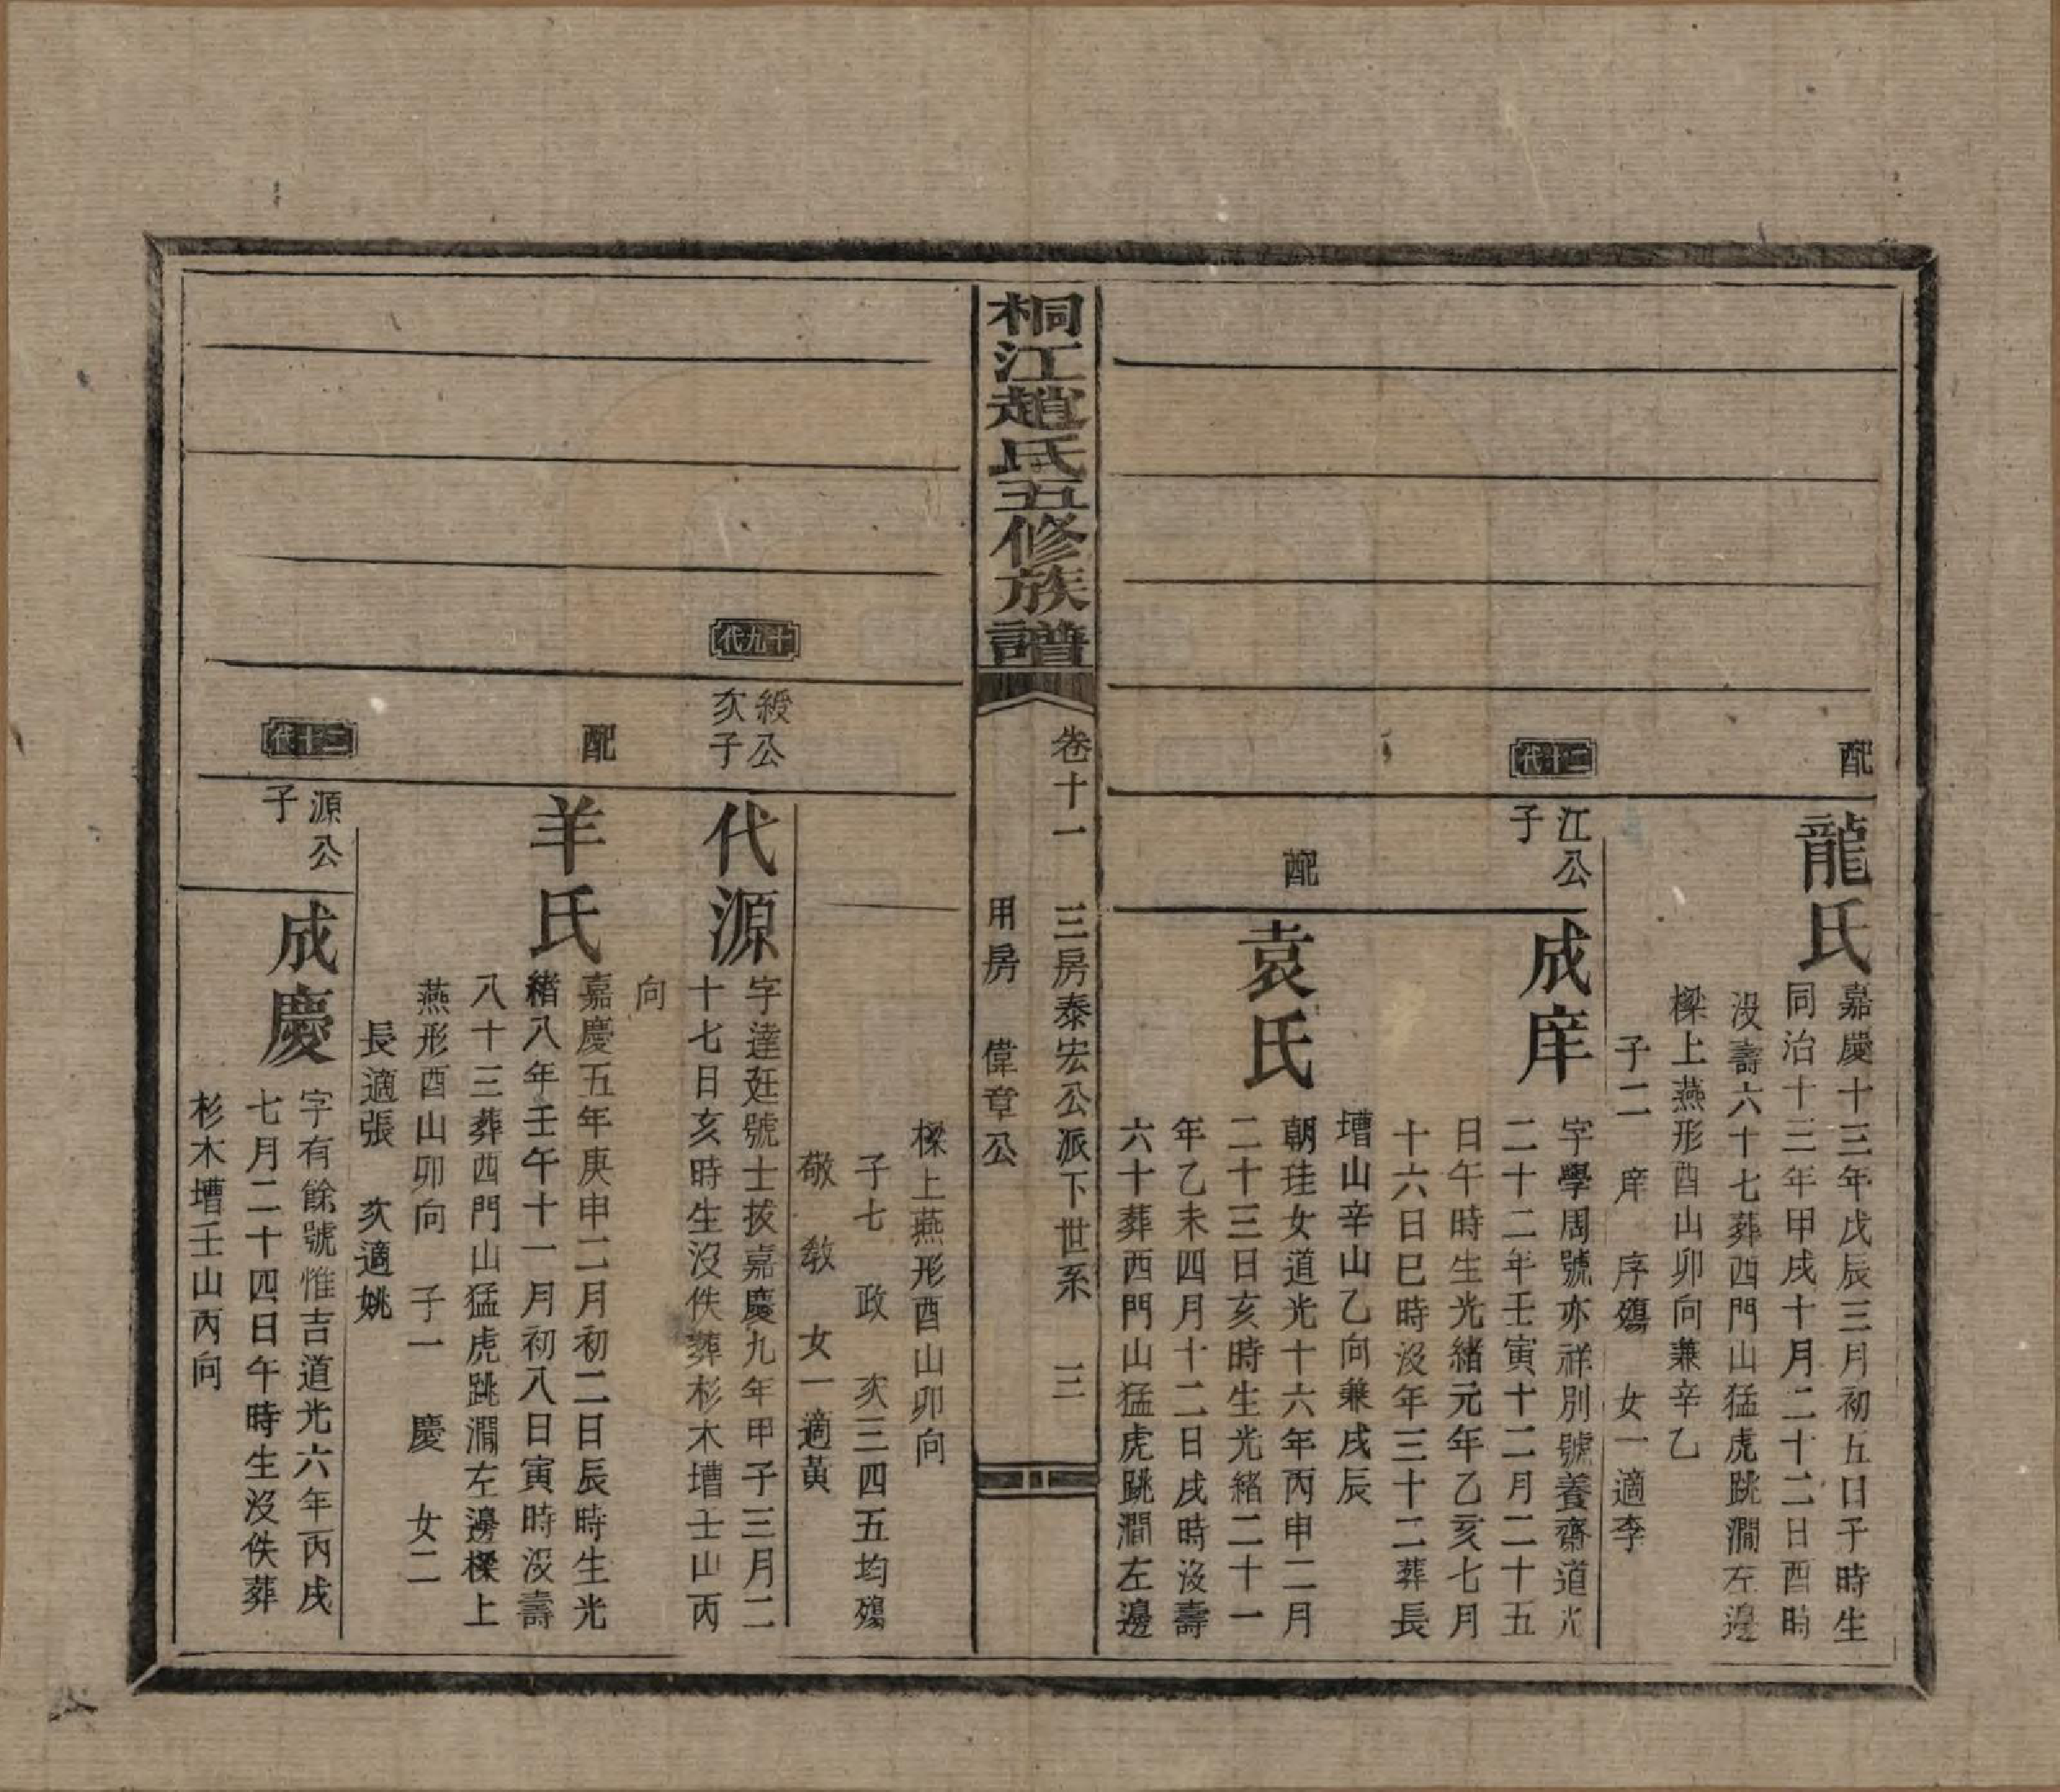 配
龍氏
嘉慶十三年戊辰三月初五日子時生
同治十三年甲戌十月二十二日酉時
沒壽六十七葬西門山猛虎跳澗左邊
樑上燕形酉山卯向兼辛乙
子二 庠 序殤 女一適李
二十代
江公
子
成庠
字學周號亦祥別號養齋道光
二十二年壬寅十二月二十五
日午時生光緒元年乙亥七月
十六日巳時沒年三十二葬長
壋山辛山乙向兼戌辰
配
袁氏
朝珪女道光十六年丙申二月
二十三日亥時生光緒二十一
年乙未四月十二日戌時沒壽
六十葬西門山猛虎跳澗左邊
桐江趙氏五修族譜
卷十一 三房泰宏公派下世系 三
用房 偉章公
樑上燕形酉山卯向
子七 政 次三四五均殤
敬 敎 女一適黃
十九代
綬公
次子
代源
字達廷號士拔嘉慶九年甲子三月二
十七日亥時生沒佚葬杉木壋壬山丙
向
配
羊氏
嘉慶五年庚申二月初二日辰時生光
緒八年壬午十一月初八日寅時沒壽
八十三葬西門山猛虎跳澗左邊樑上
燕形酉山卯向 子一 慶 女二
長適張 次適姚
二十代
源公
子
成慶
字有餘號惟吉道光六年丙戌
七月二十四日午時生沒佚葬
杉木壋壬山丙向